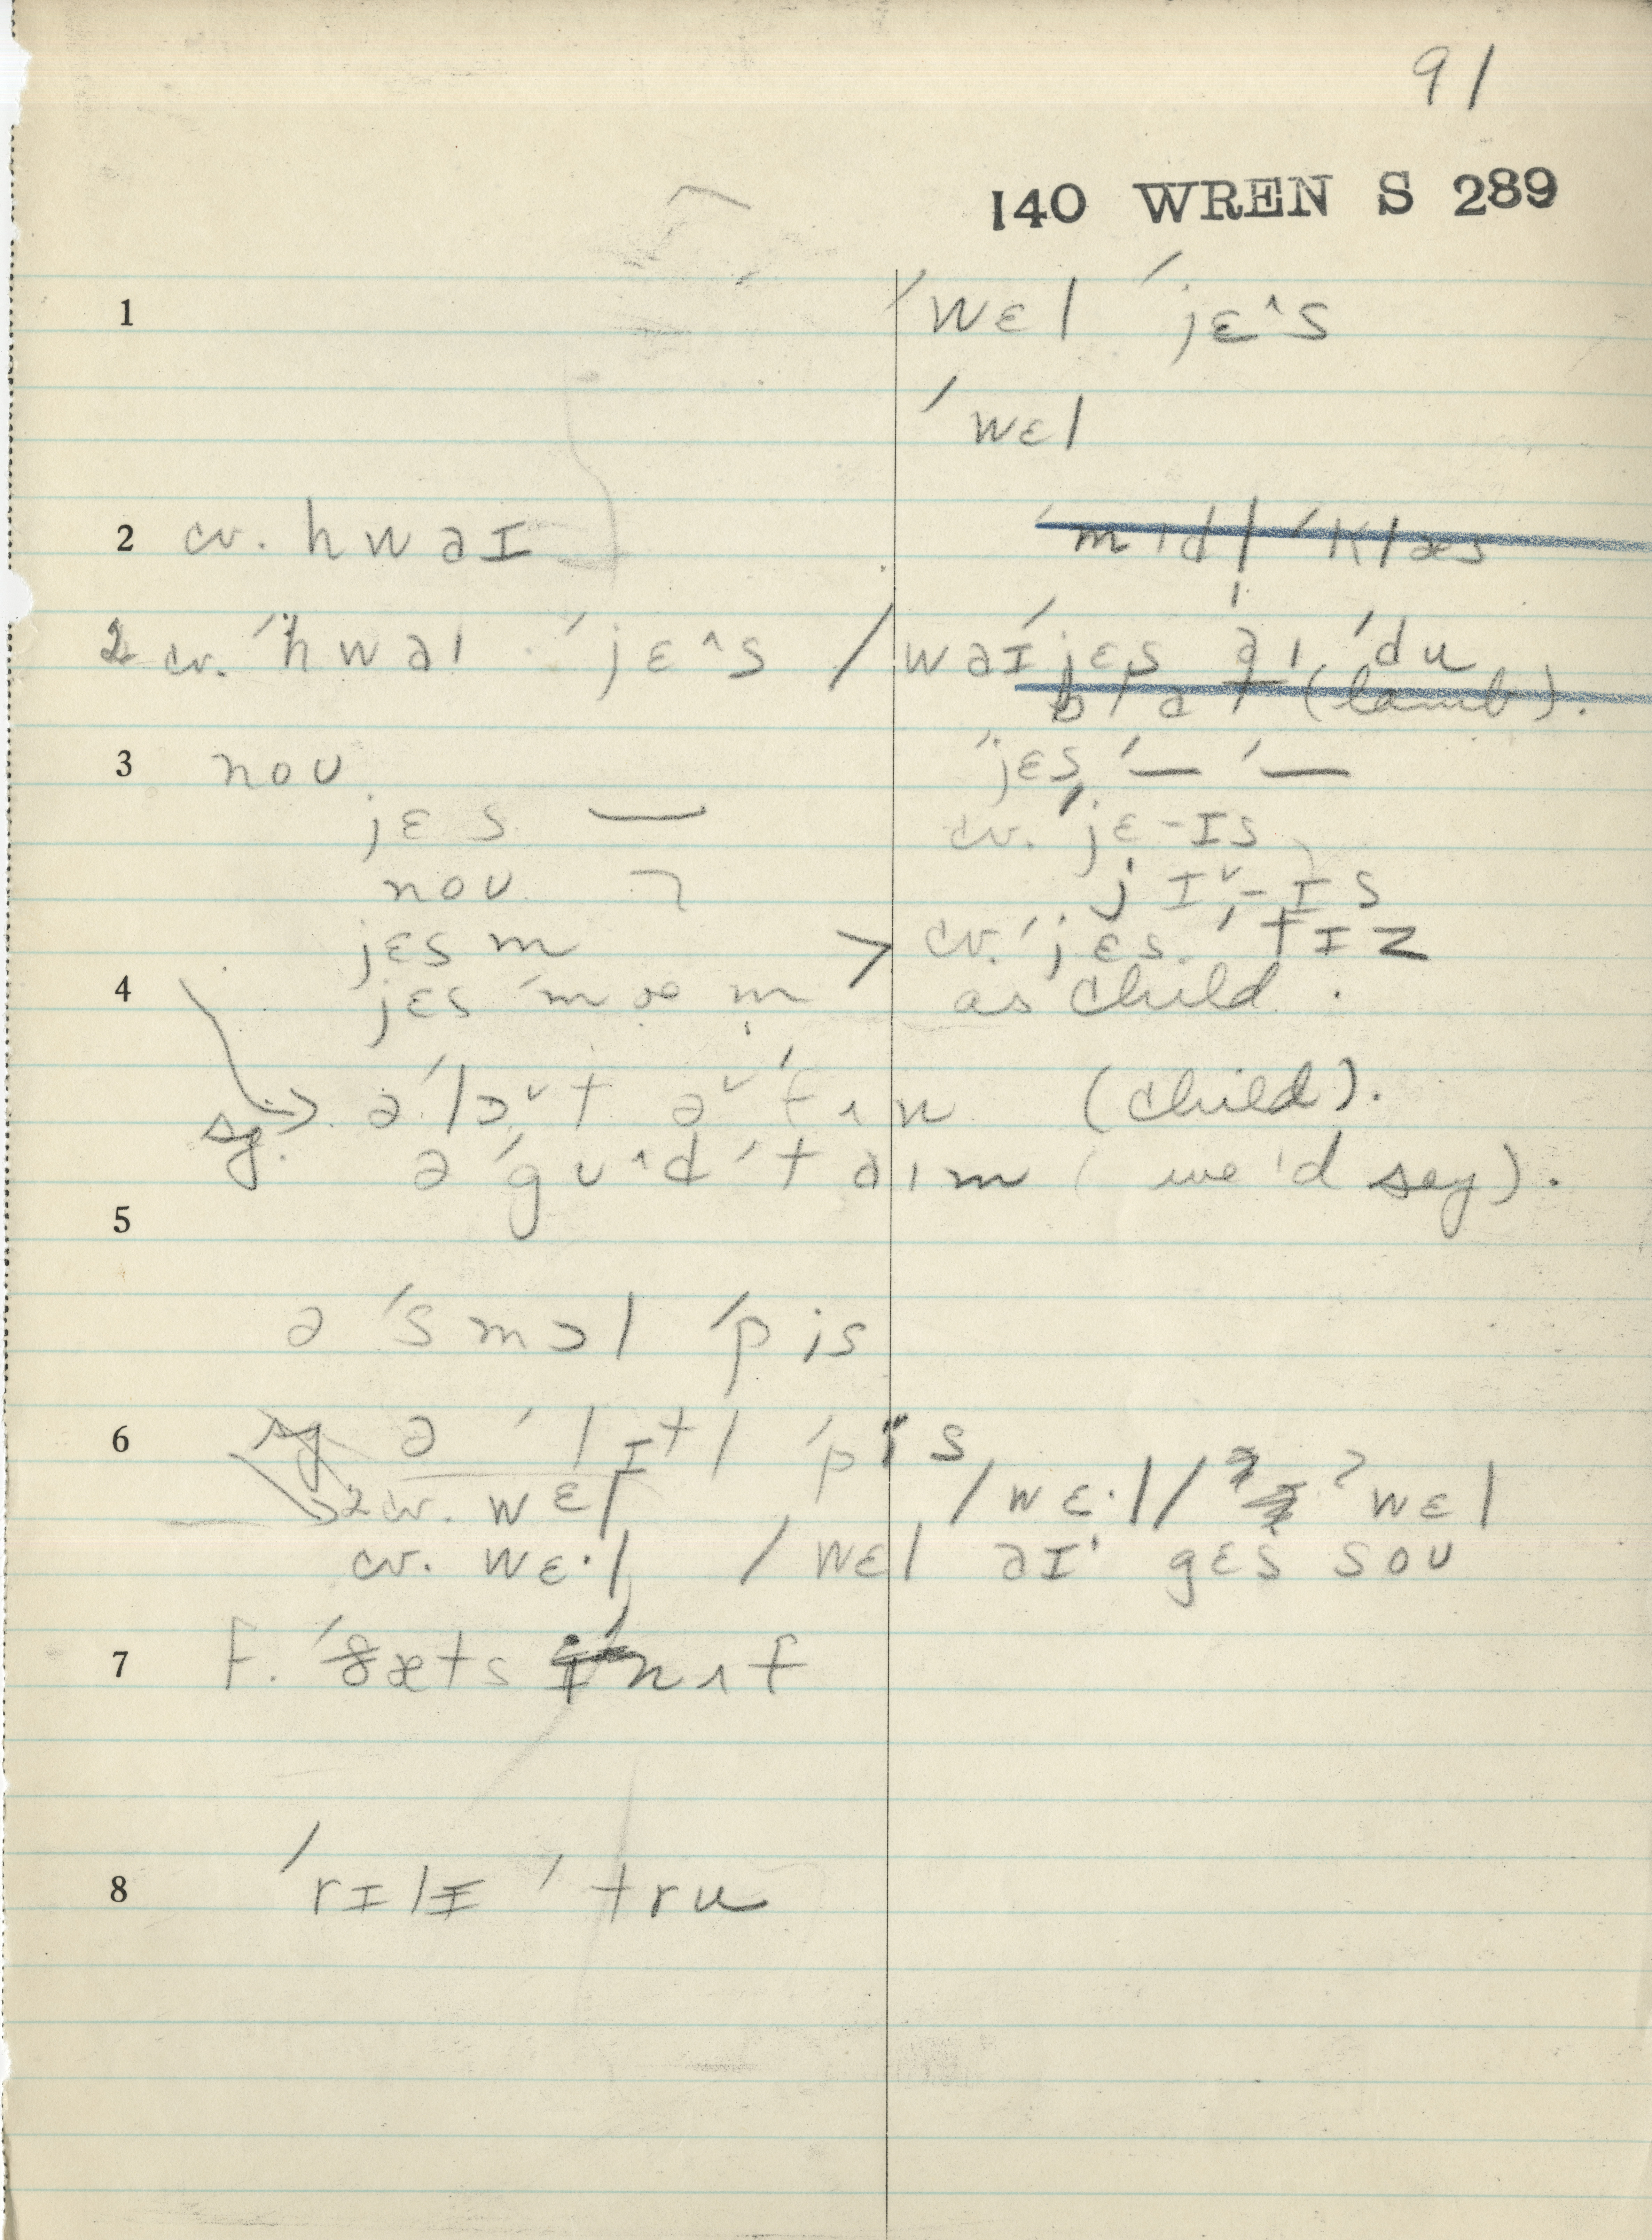 91
140 WREN S 289
1 ˈwɛl ˈjɛ^s
ˈwɛl
2 cv. hwaɪ ˈmɪdl ˈklæs
2 cv. ˈhwaɪ ˈjɛ^s / waɪ ˈjɛs aɪ ˈdu
(lamb).
3 noʊ ˈjɛs ˈ— ˈ—
jɛs cv. ˈjɛ-ɪs
noʊ ¬ jɪˇ-ɪs
jɛs m > cv. ˈjɛs ˈtɪz
4 jɛs ˈmæm as child.
sg. ə ˈlɔˇt əˇ ˈfʌn (child).
ə ˈgʊ^d ˈtaɪm (we'd say).
5
ə ˈsmɔl ˈpis
6 sg ə ˈlɪtl ˈpis
2 cv. wɛl / wɛ·l / ˀwɛl
cv. wɛ·l / wɛl aɪ gɛs soʊ
7 f. ˈðæts ɪˈnʌf
8 ˈrɪlɪ ˈtru